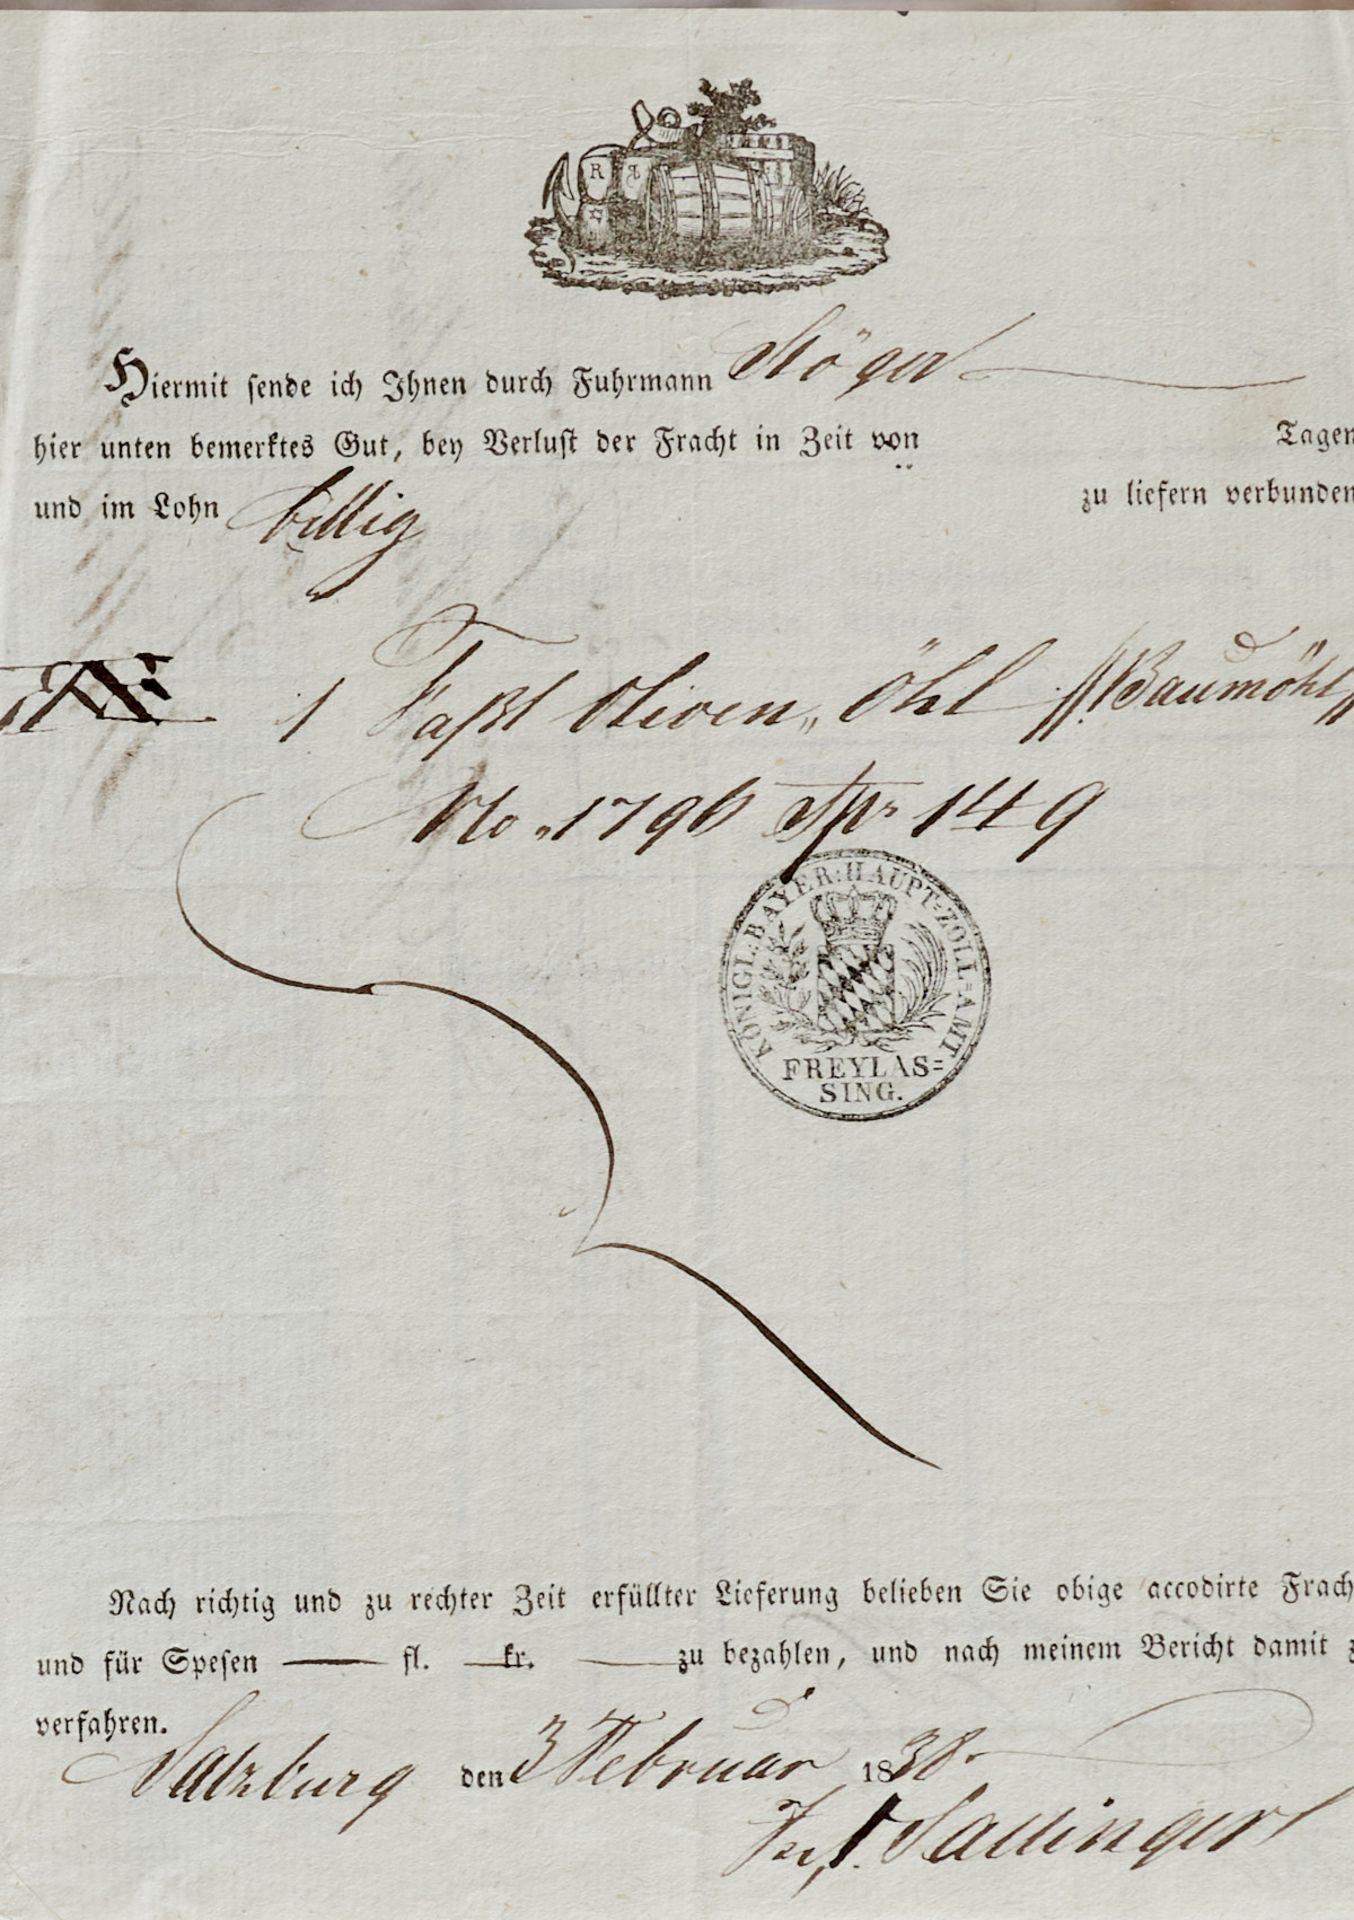 R
Hiermit sende ich Ihnen durch Fuhrmann Stöger
hier unten bemerktes Gut, bey Verlust der Fracht in Zeit von Tagen
und im Lohn billig zu liefern verbunden
1 Faßl Oliven„ Öhl //:Baumöhl//
No „1796 Spr 149
KÖNIGL: BAYER: HAUPT=ZOLL=AMT
FREYLAS=
SING.
Nach richtig und zu rechter Zeit erfüllter Lieferung belieben Sie obige accodirte Frach
und für Spesen fl. kr. zu bezahlen, und nach meinem Bericht damit z
verfahren.
Salzburg den 3 Februar 1838.
Sallinger